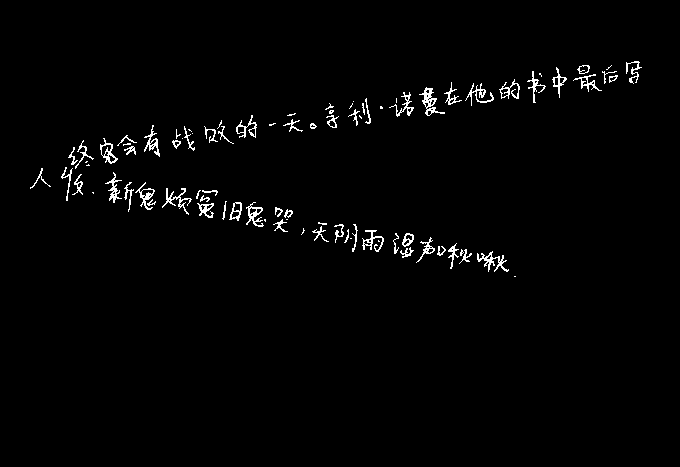 终究会有战败的一天。亨利·诺曼在他的书中最后写
人收.新鬼烦冤旧鬼哭,天阴雨湿声啾啾.